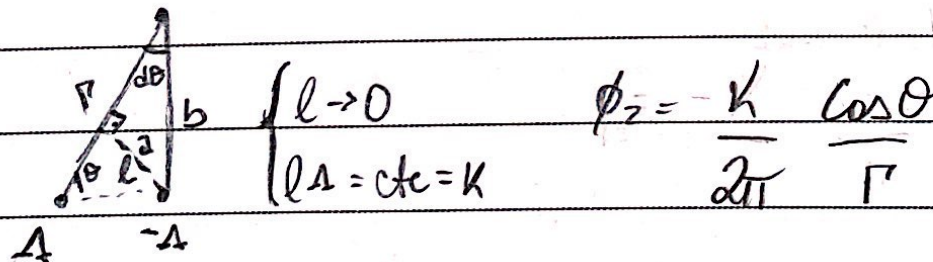 dθ
r b
θ l a
Λ -Λ
{ l → 0
lΛ = cte = K
ϕ₂ = K/2π cosθ/r